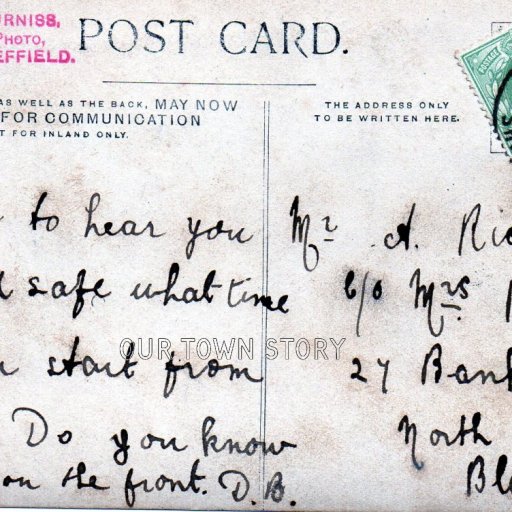 URNISS,
PHOTO,
EFFIELD.
POST CARD.
AS WELL AS THE BACK, MAY NOW
FOR COMMUNICATION
T FOR INLAND ONLY.
THE ADDRESS ONLY
TO BE WRITTEN HERE.
POSTAGE
to hear you
safe what time
start from
Do you know
on the front. D.B.
Mr A. Ric
c/o Mrs
27 Bank
North
Bl
OUR TOWN STORY